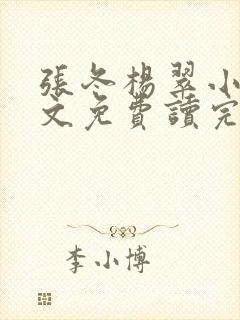 張冬楊翠小
文免費讀完
李小博